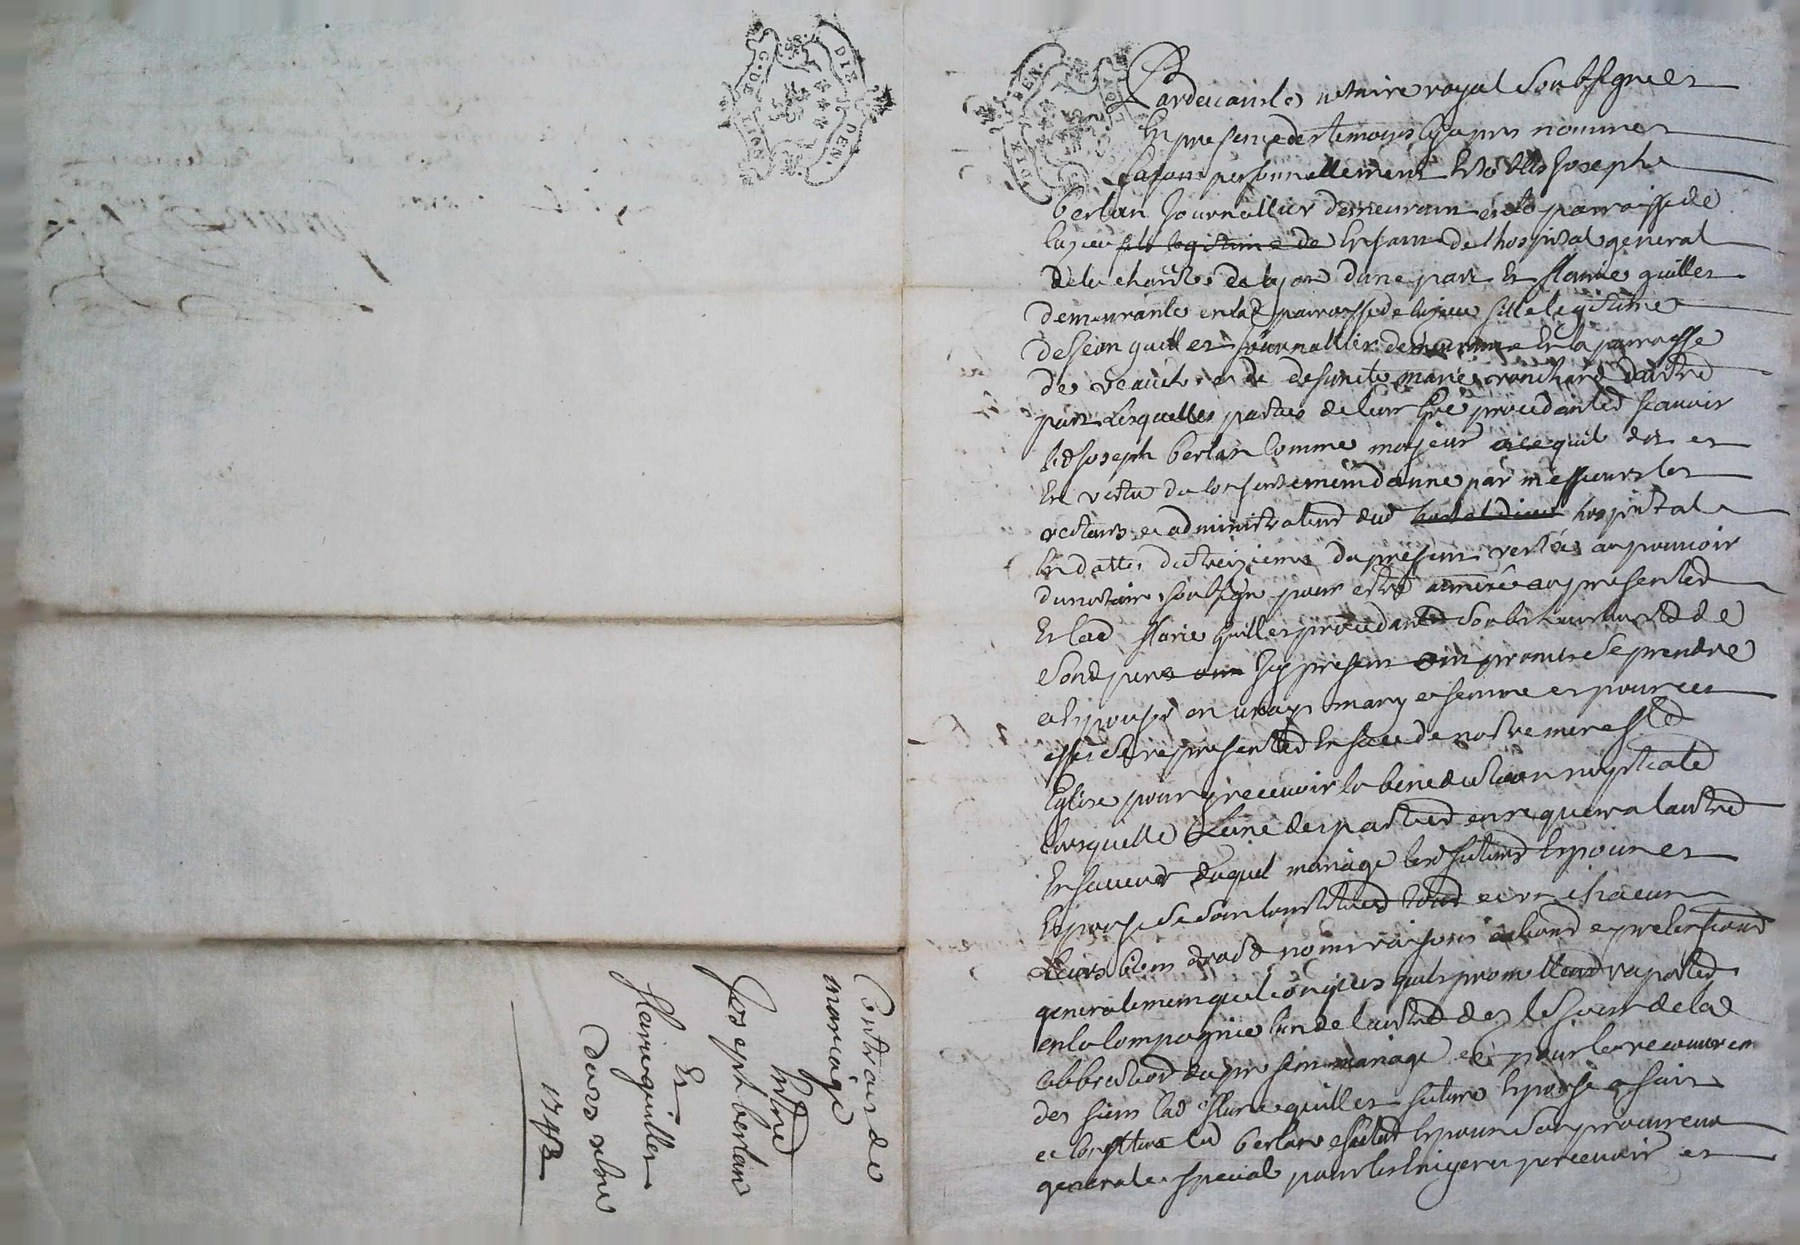 G. DE LION
DIX DEN
DIX DEN
Pardevant le notaire royal soubsigné et
en presence des temoins cy apres nommes
furent personnellement establis Joseph
berlan Journallier demeurant en la parroisse de
fils legitime de Enfant de lhospital general
de la charité de lyon dune part Et flarie guillet
demeurante en lad parroisse de fille legitime
de Jean guillet Journallier demeurant En la parroisse
de et de defuncte marie dautre
part Lesquelles parties de leur gré procedantes scavoir
led Joseph berlan Comme majeur a ce quil dit et
En vertu du Consentement donne par messieurs les
recteurs et administrateurs dud hostel dieu hospital
En datte du treizieme du present au pouvoir
du notaire soubsigné pour estre aux presentes
Et lad flarie guillet procedante soubs lauthorité de
sond pere Icy present ont promis se prendre
et Epouser en vrays mary et femme et pour cet
effet se representer En face de nostre mere ste
Eglise pour y recevoir la benediction nuptiale
lorsquelle Lune des parties en requerra lautre
En faveur duquel mariage lesd futurs Epoux et
Epouse se sont constitués tous et un chacun
Leurs biens droits noms raisons actions et pretentions
generalement quelconques quils promettent raporter
en la Compagnie lun de lautre des le Jour de la
celebration du present mariage et pour le recouvrement
des siens lad flarie guillet future Epouse a fait
et Constitué led berlan futur Epoux son procureur
general et special pour les Exiger et percevoir et
Contrat de
mariage
Entre
Joseph berlan
Et
flarie guillet
Dours
1743